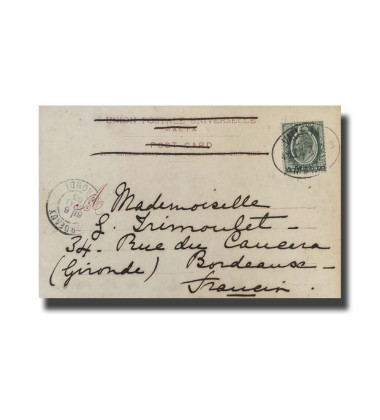 UNION POSTALE UNIVERSELLE
MALTA
POST CARD
A Mademoiselle
G. Trimoulet -
34. Rue du Cancera
(Gironde) Bordeaux -